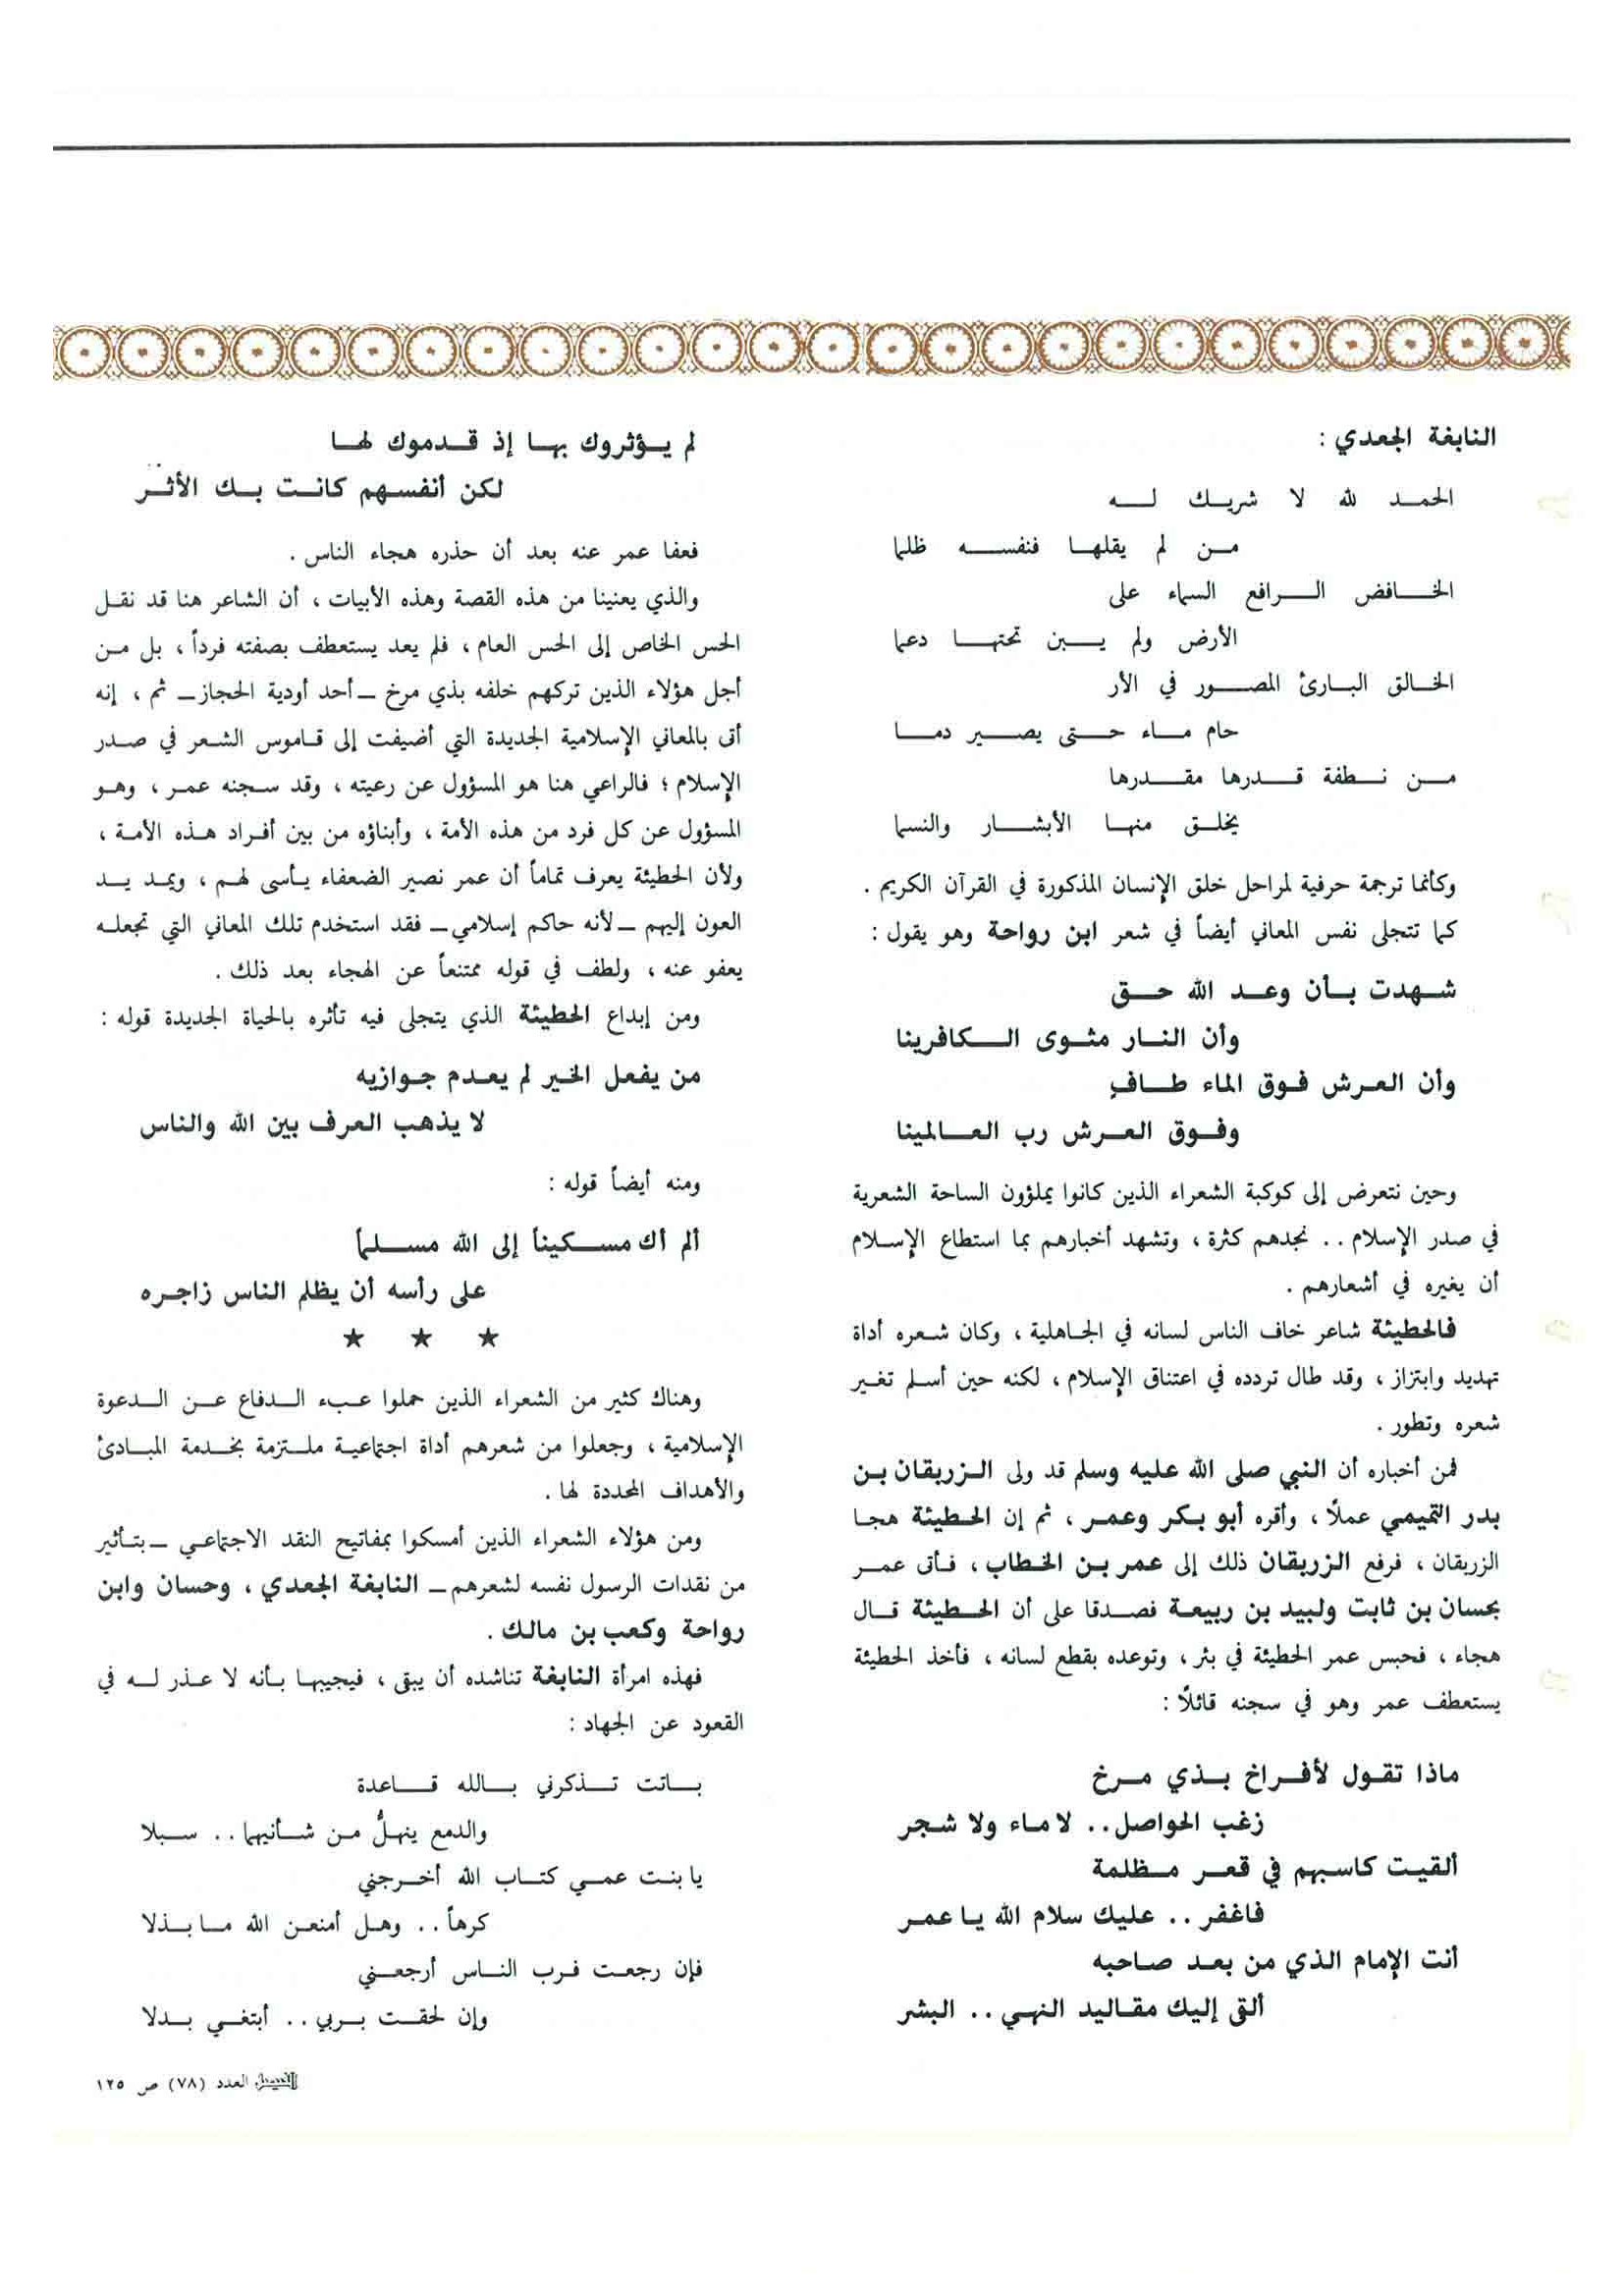 النابغة الجعدي :
الحمد لله لا شريك له
من لم يقلها فنفسه ظلما
الخافض الرافع السماء على
الأرض ولم يبن تحتها دعما
الخالق البارئ المصور في الأر
حام ماء حتى يصير دما
من نطفة قدرها مقدرها
يخلق منها الأبشار والنسما
وكأنما ترجمة حرفية لمراحل خلق الإنسان المذكورة في القرآن الكريم .
كما تتجلى نفس المعاني أيضاً في شعر ابن رواحة وهو يقول :
شهدت بأن وعد الله حق
وأن النار مثوى الكافرينا
وأن العرش فوق الماء طافٍ
وفوق العرش رب العالمينا
وحين نتعرض إلى كوكبة الشعراء الذين كانوا يملؤون الساحة الشعرية
في صدر الإسلام .. نجدهم كثرة ، وتشهد أخبارهم بما استطاع الإسلام
أن يغيره في أشعارهم .
فالحطيئة شاعر خاف الناس لسانه في الجاهلية ، وكان شعره أداة
تهديد وابتزاز ، وقد طال تردده في اعتناق الإسلام ، لكنه حين أسلم تغير
شعره وتطور .
فمن أخباره أن النبي صلى الله عليه وسلم قد ولى الزربقان بن
بدر التميمي عملاً ، وأقره أبو بكر وعمر ، ثم إن الحطيئة هجا
الزربقان ، فرفع الزربقان ذلك إلى عمر بن الخطاب ، فأتى عمر
بحسان بن ثابت ولبيد بن ربيعة فصدقا على أن الحطيئة قال
هجاء ، فحبس عمر الحطيئة في بئر ، وتوعده بقطع لسانه ، فأخذ الحطيئة
يستعطف عمر وهو في سجنه قائلاً :
ماذا تقول لأفراخ بذي مرخ
زغب الحواصل .. لا ماء ولا شجر
ألقيت كاسبهم في قعر مظلمة
فاغفر .. عليك سلام الله يا عمر
أنت الإمام الذي من بعد صاحبه
ألقى إليك مقاليد النهي .. البشر
لم يؤثروك بها إذ قدموك لها
لكن أنفسهم كانت بك الأثر
فعفا عمر عنه بعد أن حذره هجاء الناس .
والذي يعنينا من هذه القصة وهذه الأبيات ، أن الشاعر هنا قد نقل
الحس الخاص إلى الحس العام ، فلم يعد يستعطف بصفته فرداً ، بل من
أجل هؤلاء الذين تركهم خلفه بذي مرخ – أحد أودية الحجاز – ثم ، إنه
أتى بالمعاني الإسلامية الجديدة التي أضيفت إلى قاموس الشعر في صدر
الإسلام ؛ فالراعي هنا هو المسؤول عن رعيته ، وقد سجنه عمر ، وهو
المسؤول عن كل فرد من هذه الأمة ، وأبناؤه من بين أفراد هذه الأمة ،
ولأن الحطيئة يعرف تماماً أن عمر نصير الضعفاء يأسى لهم ، ويمد يد
العون إليهم – لأنه حاكم إسلامي – فقد استخدم تلك المعاني التي تجعله
يعفو عنه ، ولطف في قوله ممتنعاً عن الهجاء بعد ذلك .
ومن إبداع الحطيئة الذي يتجلى فيه تأثره بالحياة الجديدة قوله :
من يفعل الخير لم يعدم جوازيه
لا يذهب العرف بين الله والناس
ومنه أيضاً قوله :
ألم أك مسكيناً إلى الله مسلماً
على رأسه أن يظلم الناس زاجره
★ ★ ★
وهناك كثير من الشعراء الذين حملوا عبء الدفاع عن الدعوة
الإسلامية ، وجعلوا من شعرهم أداة اجتماعية ملتزمة بخدمة المبادئ
والأهداف المحددة لها .
ومن هؤلاء الشعراء الذين أمسكوا بمفاتيح النقد الاجتماعي – بتأثير
من نقدات الرسول نفسه لشعرهم – النابغة الجعدي ، وحسان وابن
رواحة وكعب بن مالك .
فهذه امرأة النابغة تناشده أن يبقى ، فيجيبها بأنه لا عذر له في
القعود عن الجهاد :
باتت تذكرني بالله قاعدة
والدمع ينهلُّ من شأنيهما .. سبلا
يا بنت عمي كتاب الله أخرجني
كرهاً .. وهل أمنعن الله ما بذلا
فإن رجعت فرب الناس أرجعني
وإن لحقت بربي .. أبتغي بدلا
الفيصل العدد (٧٨) ص ١٢٥